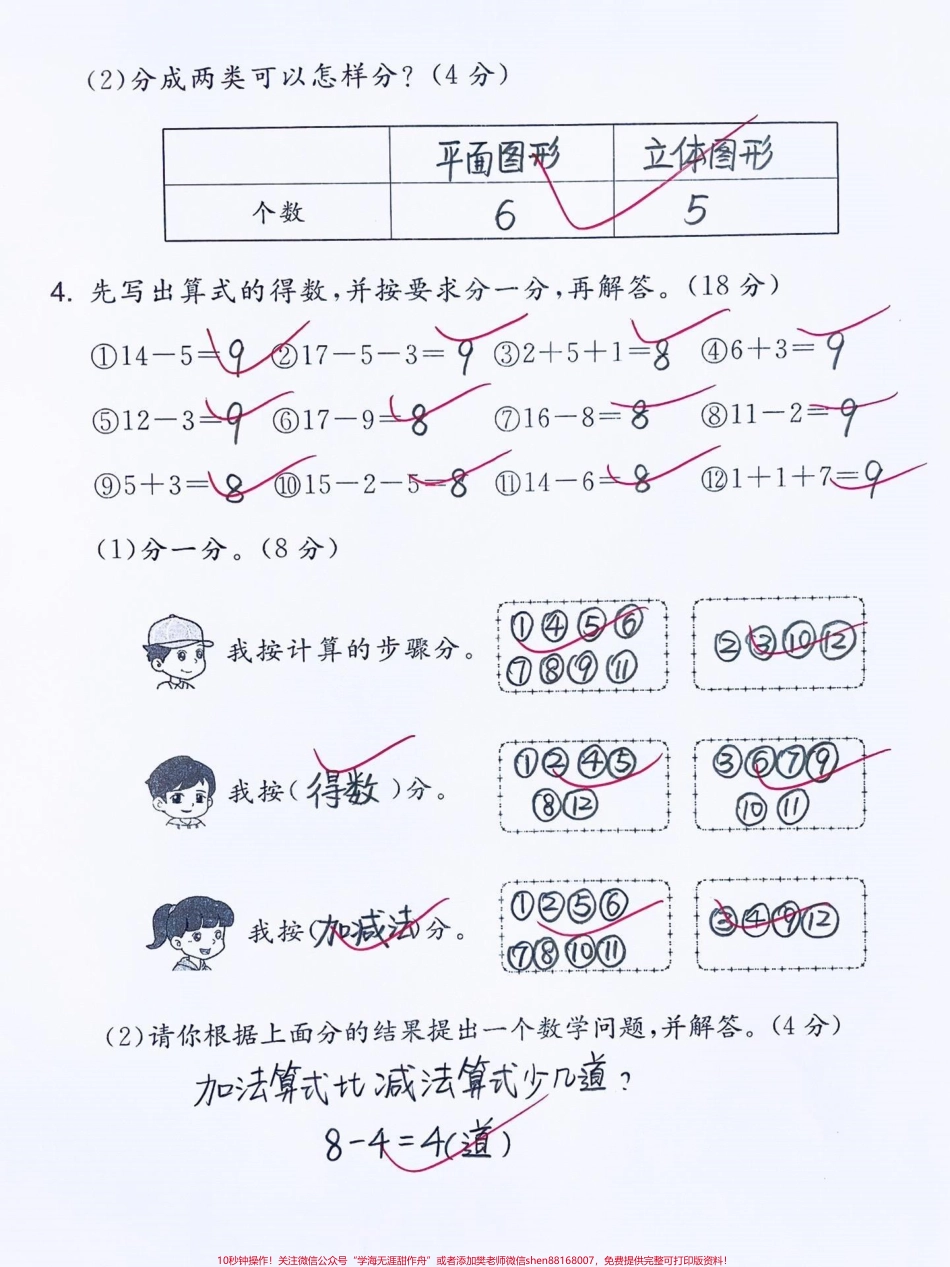 (2)分成两类可以怎样分?(4分)
平面图形 立体图形
个数 6 5
4. 先写出算式的得数,并按要求分一分,再解答。(18分)
①14-5=9 ②17-5-3=9 ③2+5+1=8 ④6+3=9
⑤12-3=9 ⑥17-9=8 ⑦16-8=8 ⑧11-2=9
⑨5+3=8 ⑩15-2-5=8 ⑪14-6=8 ⑫1+1+7=9
(1)分一分。(8分)
①④⑤⑥
我按计算的步骤分。 ②③⑩⑫
⑦⑧⑨⑪
①②④⑤ ③⑥⑦⑨
我按(得数)分。
⑧⑫ ⑩⑪
①②⑤⑥
我按(加减法)分。 ③④⑨⑫
⑦⑧⑩⑪
(2)请你根据上面分的结果提出一个数学问题,并解答。(4分)
加法算式比减法算式少几道?
8-4=4(道)
10秒钟操作!关注微信公众号“学海无涯甜作舟”或者添加樊老师微信shen88168007,免费提供完整可打印版资料!